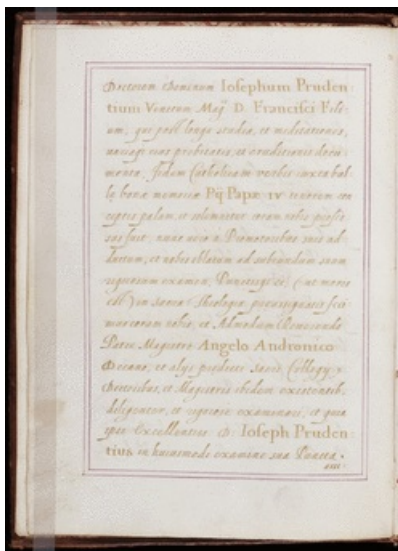 Doctorem Dominum Iosephum Pruden
tium Venetum Mag. D. Francisci Fili
um, qui post longa studia, et meditationes,
probitatis, et eruditionis docu
menta, fidem Catholicam verbis iuxta bul
la bonæ memoriæ Pij Papæ IV tenorem con
ceptis palam, et solemniter coram nobis profes
sus fuit, nunc vero a Promotoribus suis ad
ductum, et nobis oblatum ad subeundum suum
rigorosum examen, (ut moris
est) in Sacra Theologia
coram nobis, et Admodum Reuerendo
Patre Magistro Angelo Andronico
Decano, et alijs Sacri Collegij
Doctoribus, et Magistris ibidem existentib.
diligenter, et rigorose examinari, et quia
ipse Excellentiss. D. Ioseph Pruden
tius in huiusmodi examine sua Puncta